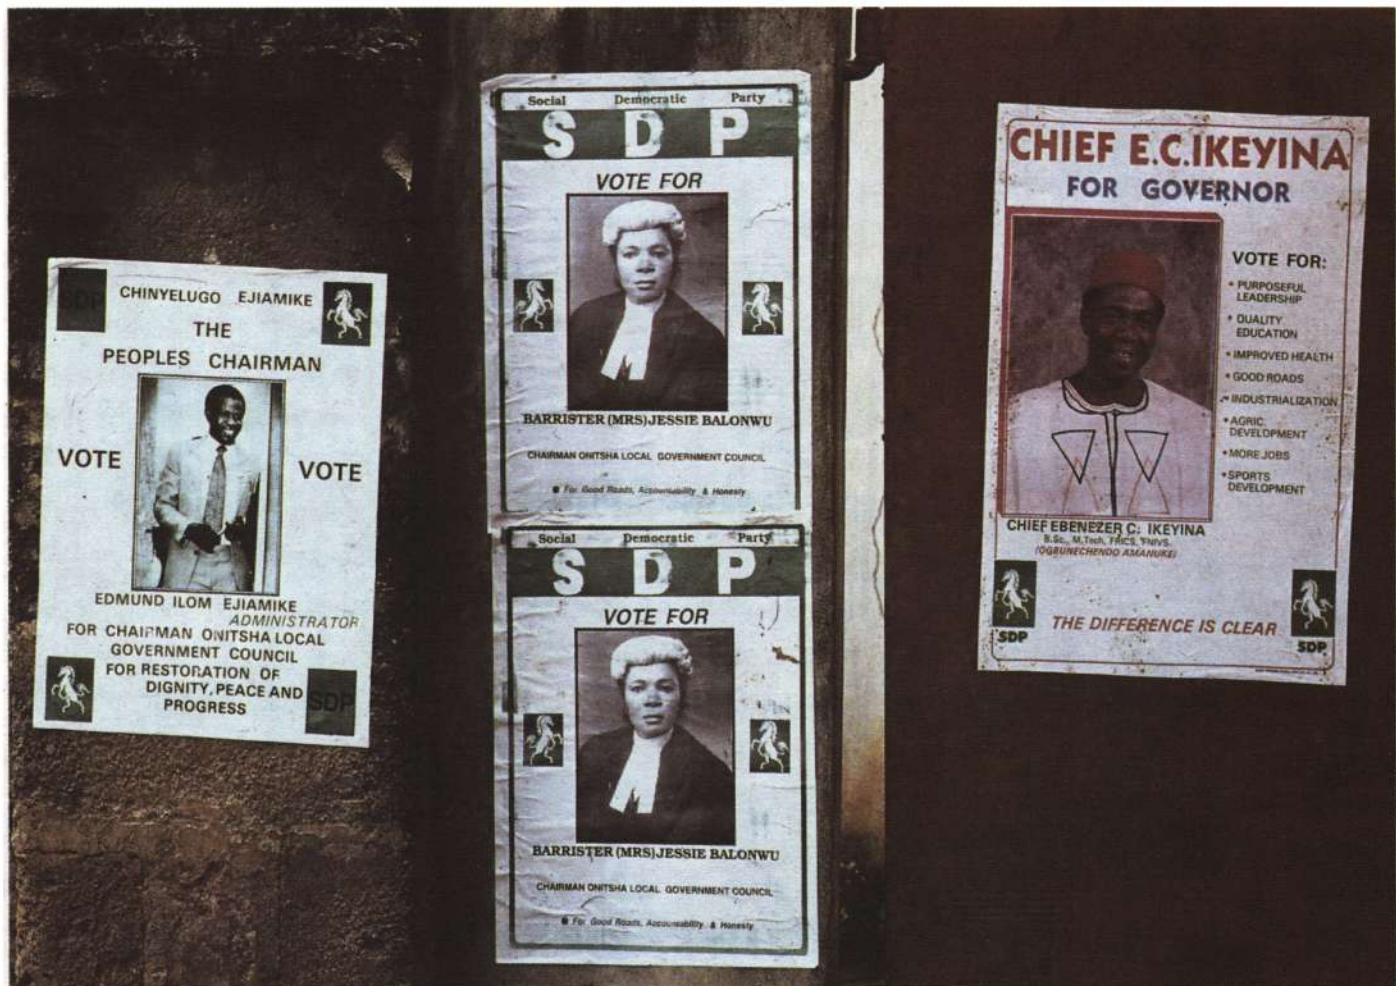 SDP
CHINYELUGO EJIAMIKE
THE
PEOPLES CHAIRMAN
VOTE
VOTE
EDMUND ILOM EJIAMIKE
ADMINISTRATOR
FOR CHAIRMAN ONITSHA LOCAL
GOVERNMENT COUNCIL
FOR RESTORATION OF
DIGNITY, PEACE AND
PROGRESS
SDP
Social Democratic Party
SDP
VOTE FOR
BARRISTER (MRS) JESSIE BALONWU
CHAIRMAN ONITSHA LOCAL GOVERNMENT COUNCIL
For Good Roads, Accountability & Honesty
Social Democratic Party
SDP
VOTE FOR
BARRISTER (MRS) JESSIE BALONWU
CHAIRMAN ONITSHA LOCAL GOVERNMENT COUNCIL
For Good Roads, Accountability & Honesty
CHIEF E.C. IKEYINA
FOR GOVERNOR
VOTE FOR:
• PURPOSEFUL
LEADERSHIP
• QUALITY
EDUCATION
• IMPROVED HEALTH
• GOOD ROADS
• INDUSTRIALIZATION
• AGRIC.
DEVELOPMENT
• MORE JOBS
• SPORTS
DEVELOPMENT
CHIEF EBENEZER C. IKEYINA
B.Sc., M.Tech, FRICS, FNIVS.
(OGBUNECHENDO AMANUKE)
THE DIFFERENCE IS CLEAR
SDP
SDP